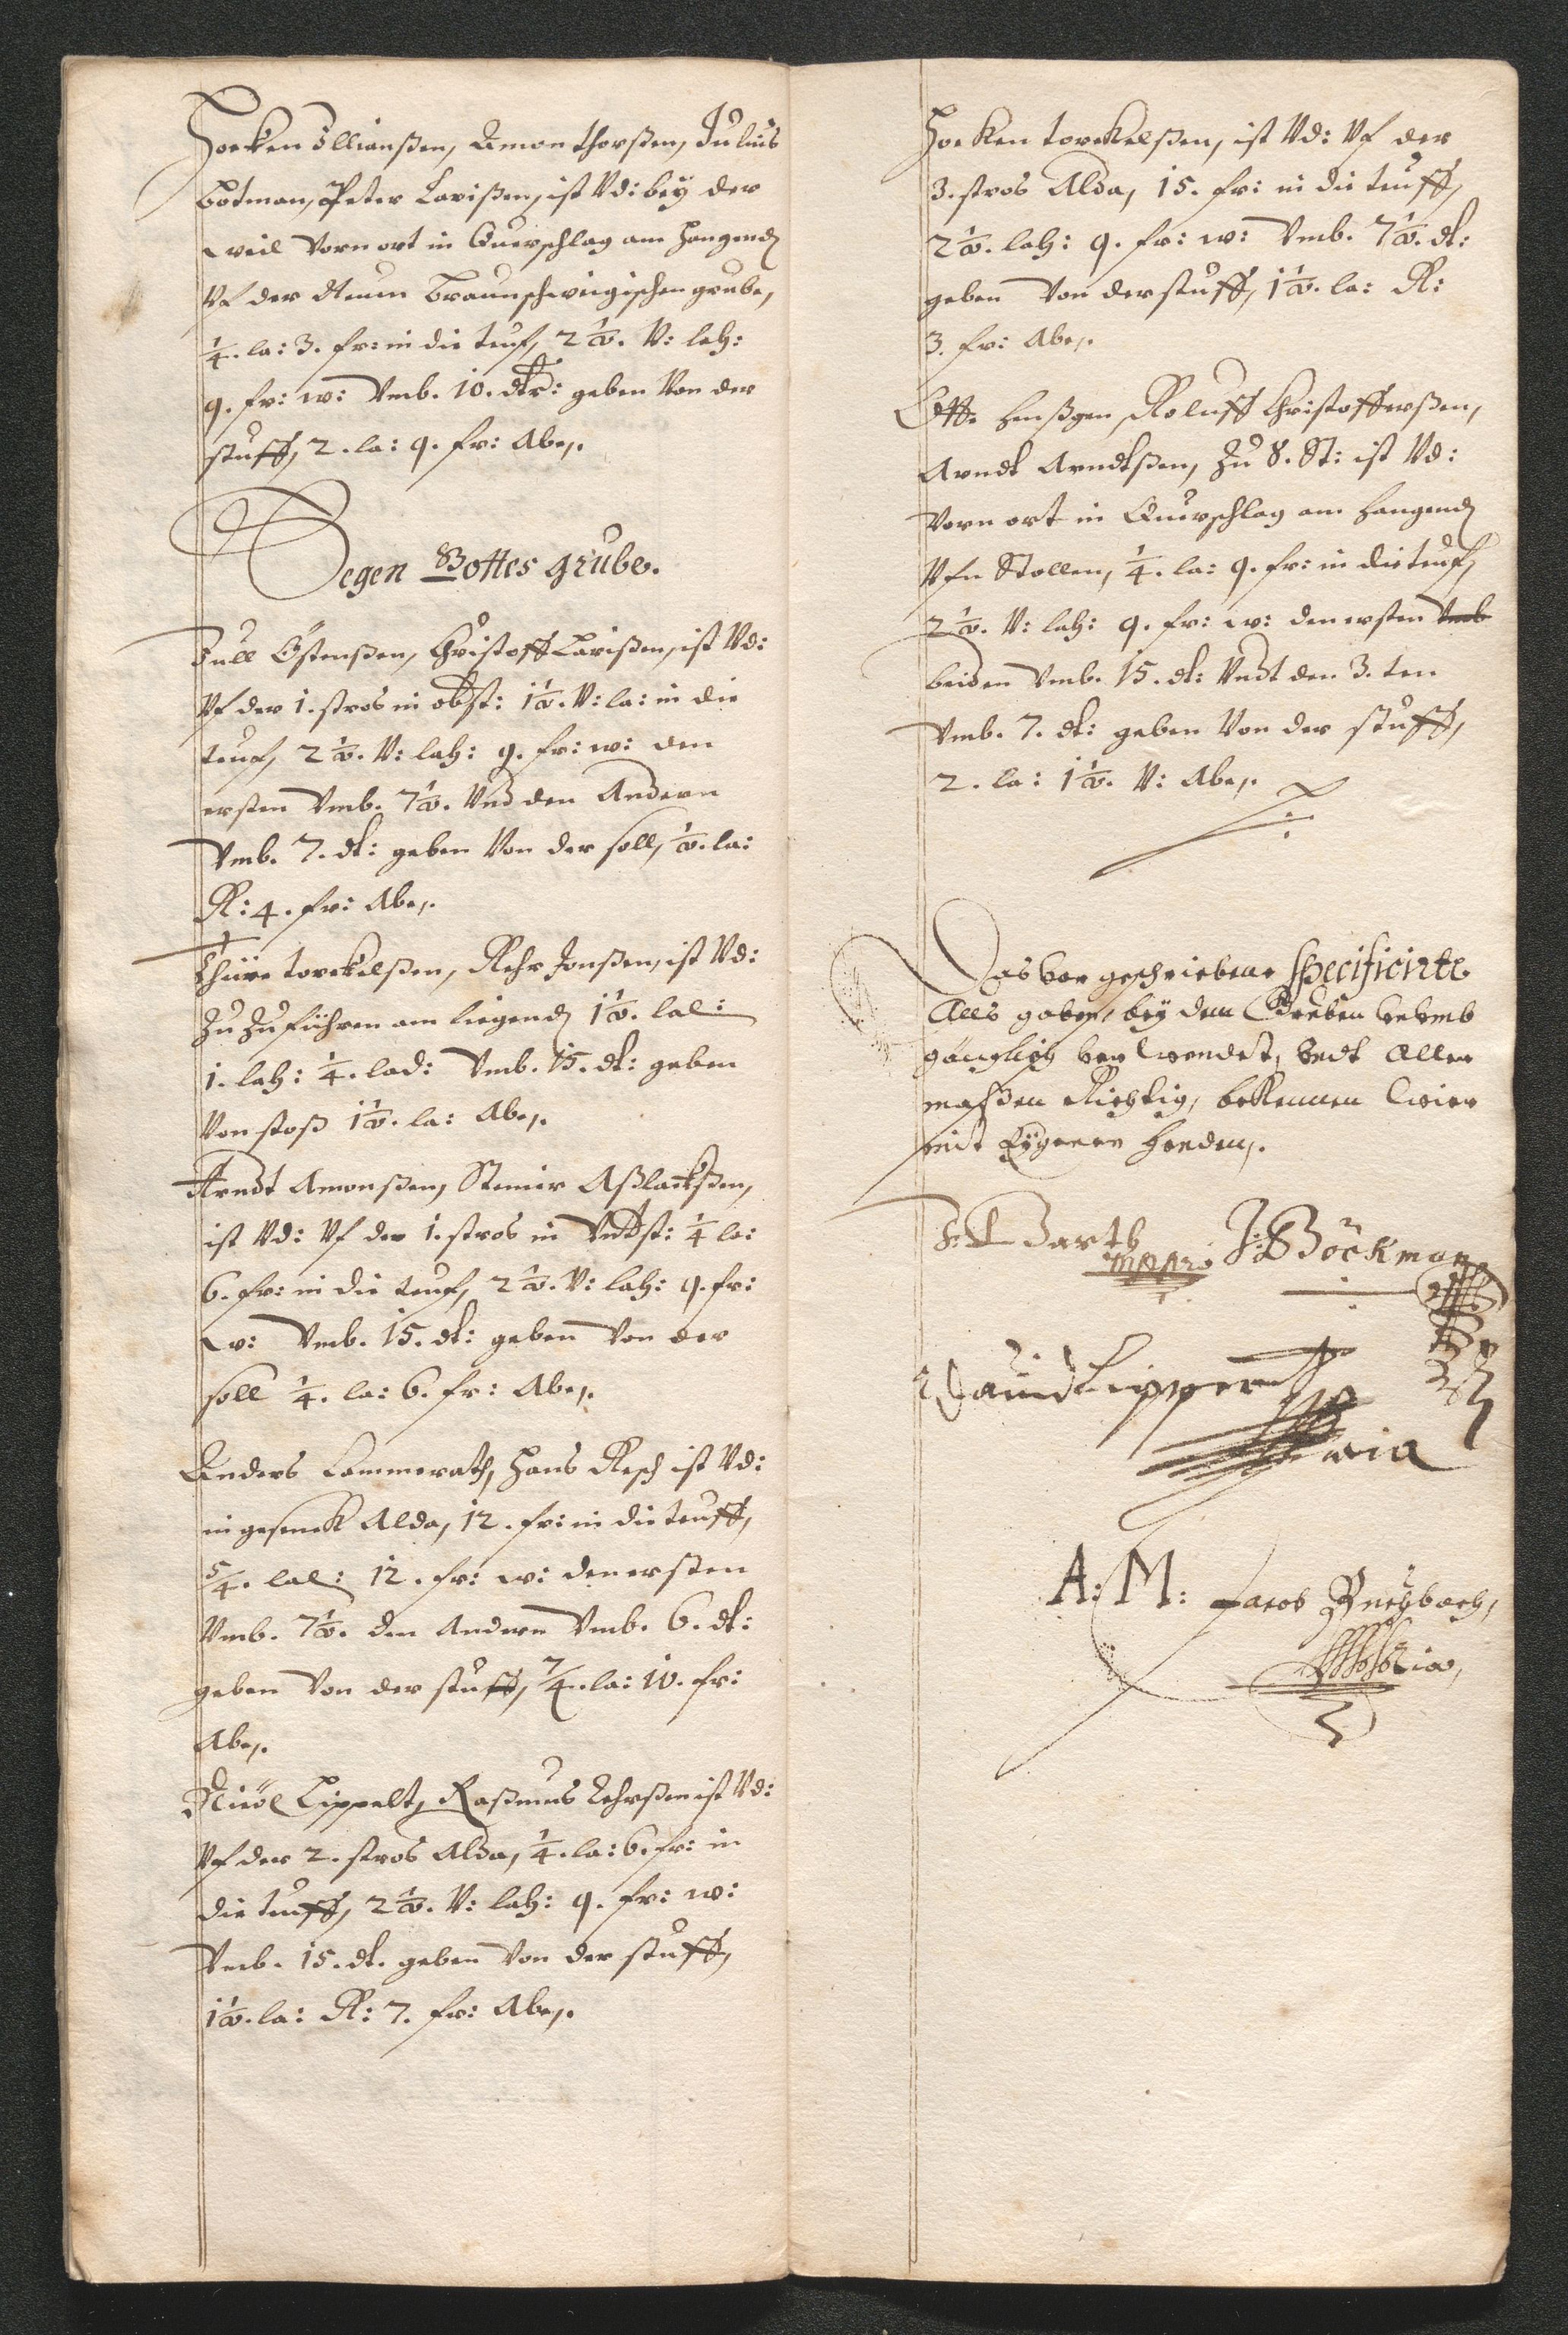 Hoeken Illianßen, Amon thorßen, Julius
Botman, Peter Larißen, ist Vd: bey der
weil Vorn ort in Querschlag am Hangend
Vf der Neuen Braunschweigischen grube,
1/4. la: 3. fr: in die teuf, 2 1/2. V: lah:
9. fr: w: Vmb. 10. dlr: geben Von der
stuff, 2. la: 9. fr: Abe,.
Segen Gottes grube.
Tull Östenßen, Christoff Larißen, ist Vd:
Vf der 1. stros in obst: 1 1/2. V: la: in die
teuf, 2 1/2. V: lah: 9. fr: w: den
ersten Vmb. 7 1/2. Vnd den Andern
Vmb. 7. dl: geben Von der soll, 1/2. la:
R: 4. fr: Abe,.
Thüre torckelßen, Rehr Jonßen, ist Vd:
Zu Zu führen am liegend 1 1/2. lal:
1. lah: 1/4. lad: Vmb. 15. dl: geben
Von stoß 1 1/2. la: Abe,.
Arndt Amonßen, Steiner Aßlackßen,
ist Vd: Vf der 1. stros in Vndst: 1/4 la:
6. fr: in die teuf, 2 1/2. V: lah: 9. fr:
w: Vmb. 15. dl: geben Von der
soll 1/4. la: 6. fr: Abe,.
Anders Cammerath, Hans Resch ist Vd:
in gesenck Alda, 12. fr: in die teuff,
5/4. lal: 12. fr: w: den ersten
Vmb. 7 1/2. den Andern Vmb. 6. dl:
geben Von der stuff, 7/4. la: 10. fr:
Abe,.
Nicol Lippelt, Raßmus Lehrßen ist Vd:
Vf der 2. stros Alda, 1/4. la: 6. fr: in
die teuff, 2 1/2. V: lah: 9. fr: w:
Vmb. 15. dl. geben Von der stuff,
1 1/2. la: R: 7. fr: Abe,.
Hoeken torckelßen, ist Vd: Vf der
3. stros Alda, 15. fr: in die teuff,
2 1/2. lah: 9. fr: w: Vmb. 7 1/2. dl:
geben Von der stuff, 1 1/2. la: R:
3. fr: Abe,.
Roluff Christofferßen,
Arndt Arndtßen, Zu 8. St: ist Vd:
Vorn ort in Querschlag am hangend
Vfn Stollen, 1/4. la: 9. fr: in die teuf,
2 1/2. V: lah: 9. fr: w: den ersten Vmb
beiden Vmb. 15. dl: Vndt den 3. ten
Vmb. 7. dl: geben Von der stuff,
2. la: 1 1/2. V: Abe,.
Das vor geschriebene Specificirte
Alles gaben, bey dem Gruben
gäntzlich ver wendet, Vndt Aller
maßen Richtig, bekennen wier
mit Eygenen henden,.
Barth J: Böckman
mppria
Dauid Lippert
A: M: Jacob